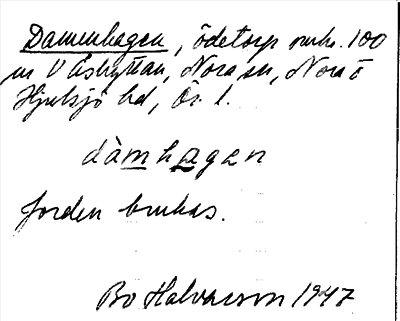 Dammhagen, ödetorp omkr. 100
m V Åsbyttan, Nora sn, Nora o
Hjulsjö bd, Ör. l.
dàmhagen
Jorden brukas.
Bo Halvarson 1947